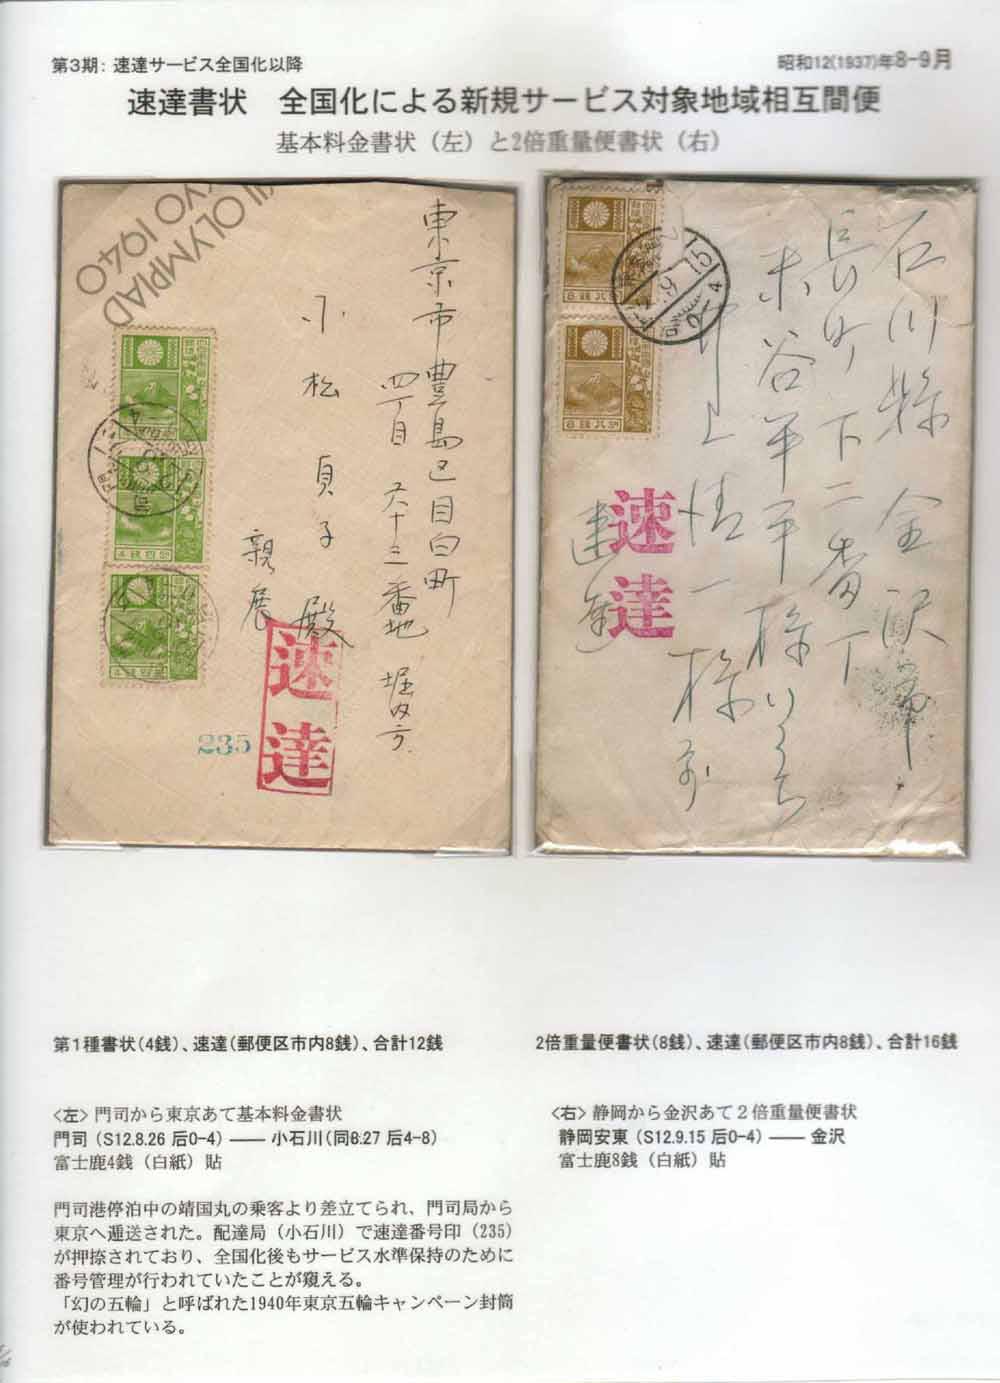 第3期: 速達サービス全国化以降
昭和12(1937)年8-9月
速達書状　全国化による新規サービス対象地域相互間便
基本料金書状（左）と2倍重量便書状（右）
OLYMPIAD
1940
東京市豊島区目白町
四丁目 六十三番地 堀内方
小松貞子殿
親展
速達
235
石川縣金沢市
長町下二番丁
井上清一様
速達
第1種書状(4銭)、速達(郵便区市内8銭)、合計12銭
〈左〉門司から東京あて基本料金書状
門司（S12.8.26 后0-4）―― 小石川(同8.27 后4-8)
富士鹿4銭（白紙）貼
門司港停泊中の靖国丸の乗客より差立てられ、門司局から
東京へ逓送された。配達局（小石川）で速達番号印（235)
が押捺されており、全国化後もサービス水準保持のために
番号管理が行われていたことが窺える。
「幻の五輪」と呼ばれた1940年東京五輪キャンペーン封筒
が使われている。
2倍重量便書状(8銭)、速達(郵便区市内8銭)、合計16銭
〈右〉静岡から金沢あて２倍重量便書状
静岡安東（S12.9.15 后0-4）―― 金沢
富士鹿8銭（白紙）貼